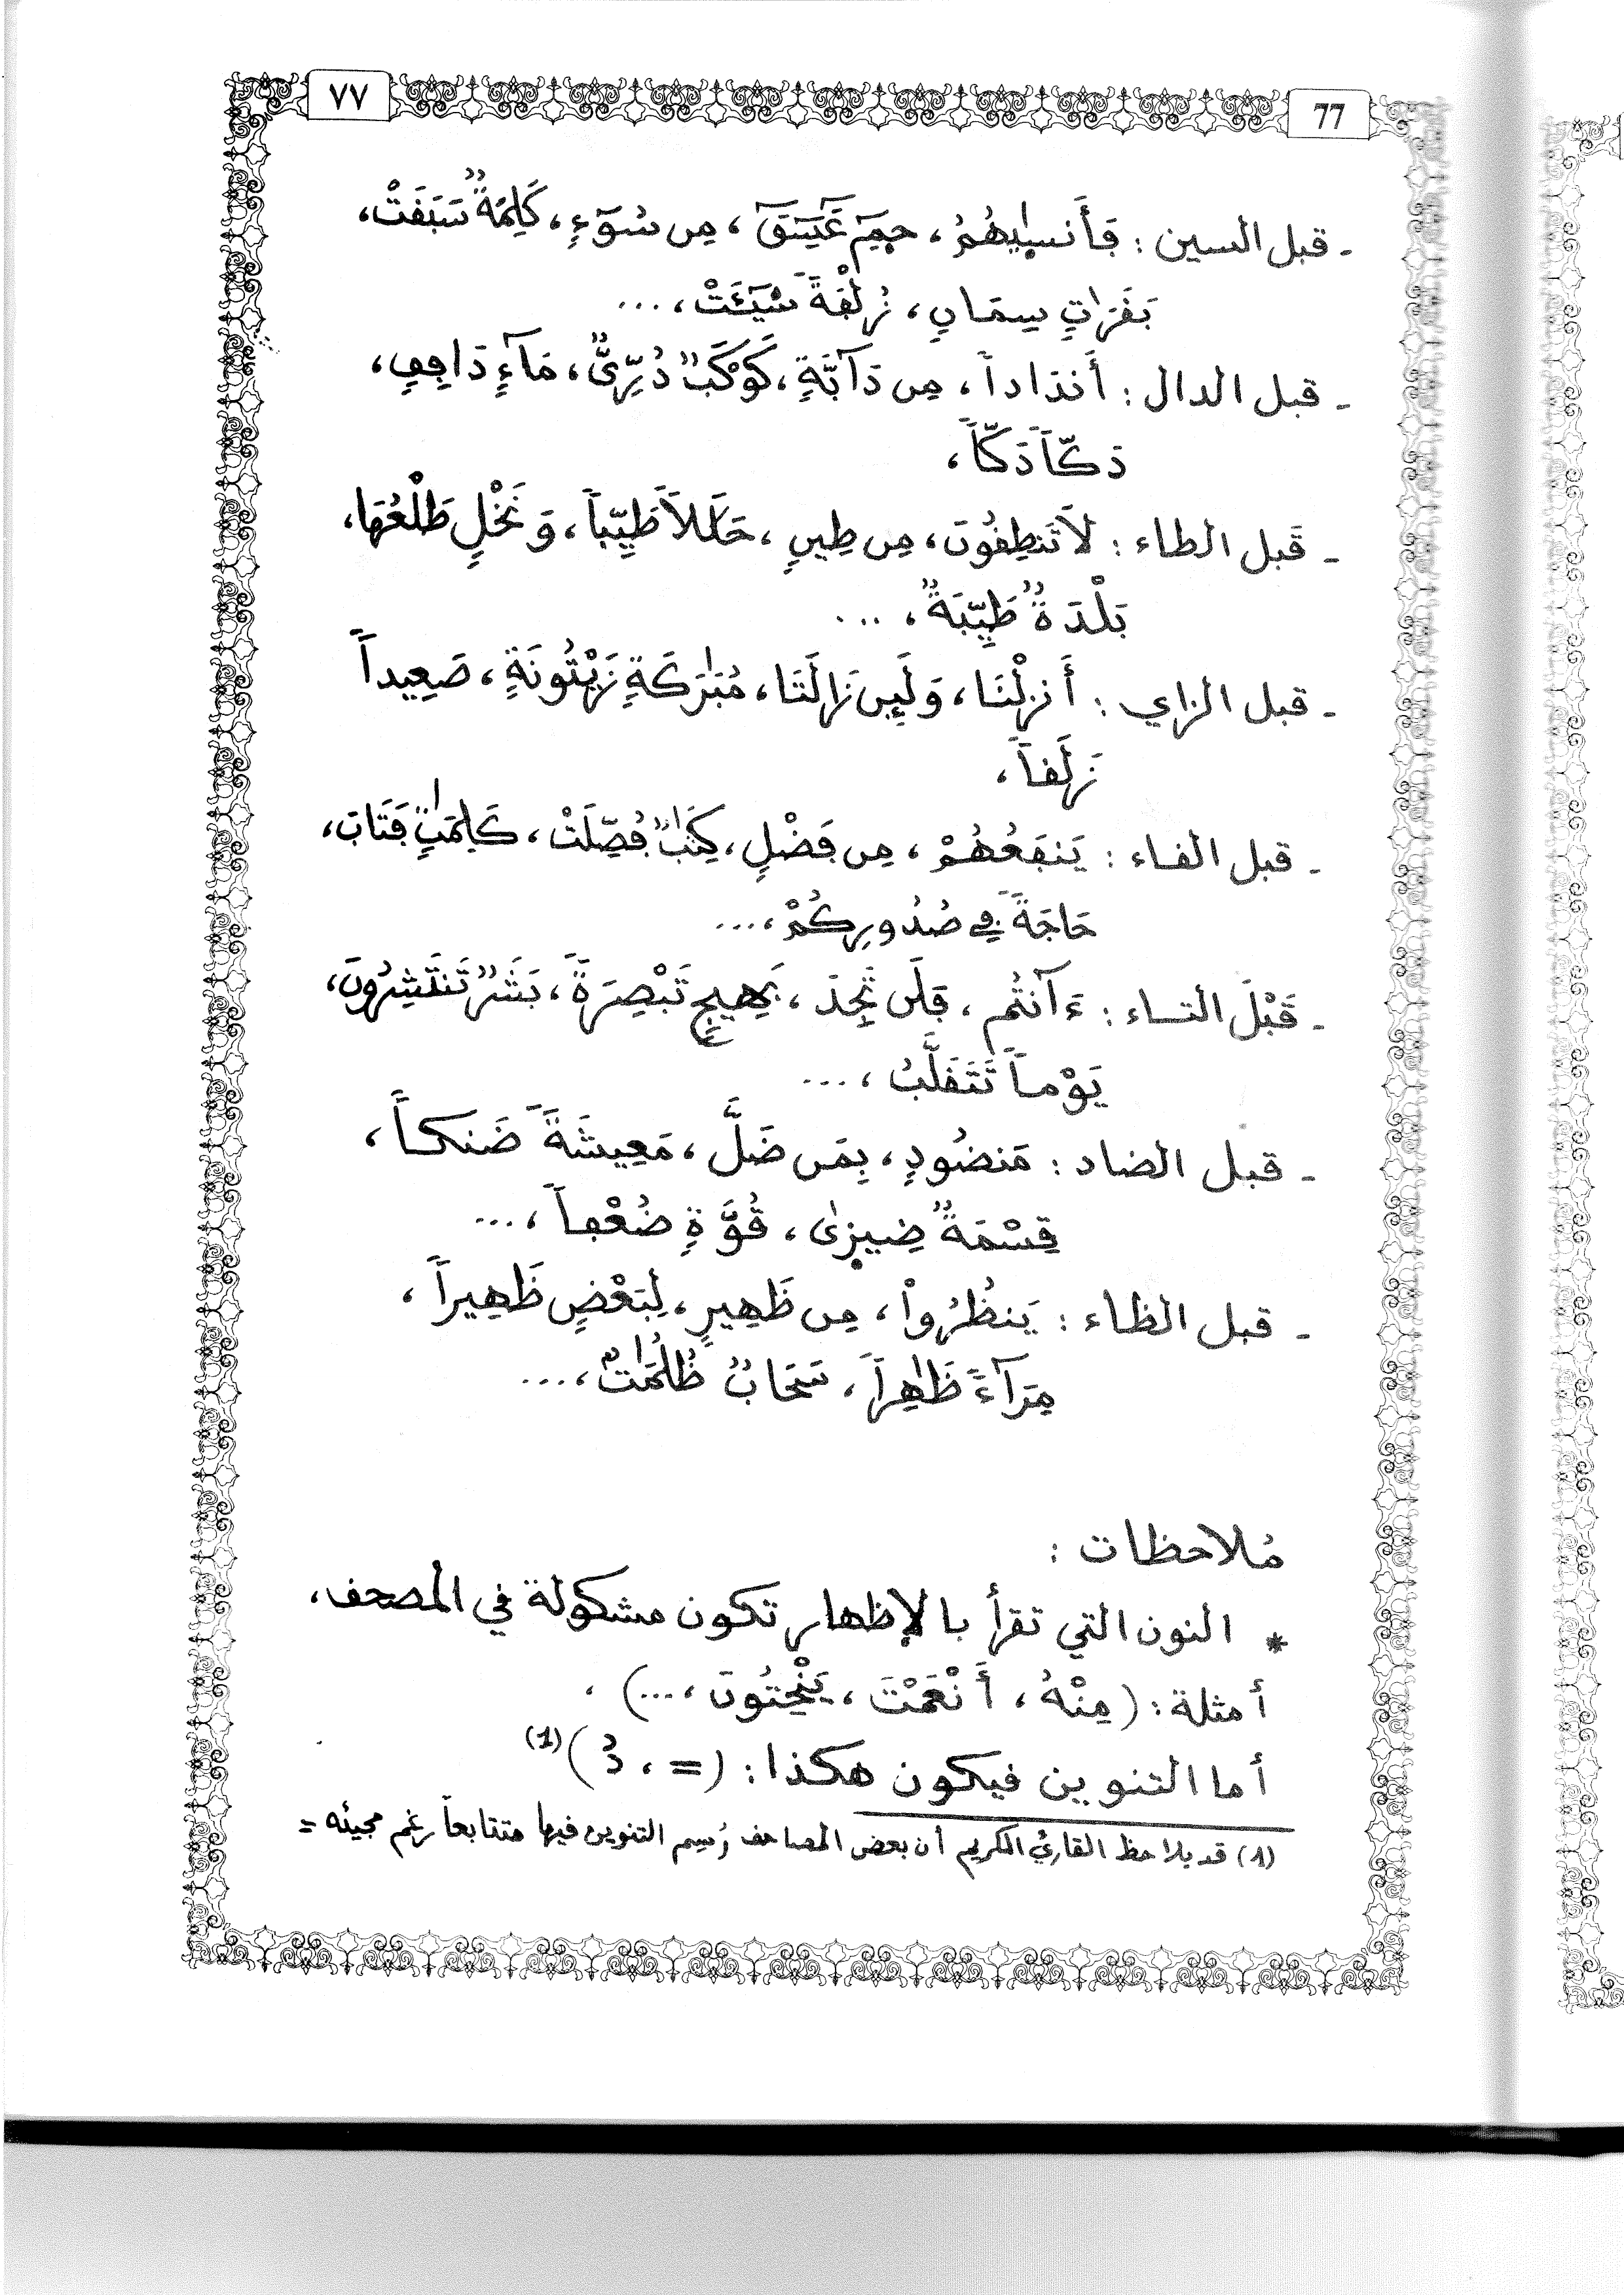 ٧٧
77
- قبل السين : فَأَنسٜىٰهُمُ ، حمٓ عٓسٓقٓ ، مِن سُوٓءٖ ، كَلِمَةٞ سَبَقَتْ ،
بَقَرَٰتٖ سِمَانٖ ، زُلْفَةٗ سِيٓـَٔتْ ، ...
- قبل الدال : أَندَاداٗ ، مِن دَآبَّةٖ ، كَوْكَبٞ دُرِّيٌّ ، مَآءٖ دَافِقٖ ،
دَكّاٗ دَكّاٗ ،
- قَبل الطاء : لَا تَنطِقُونَ ، مِن طِينٖ ، حَلَٰلاٗ طَيِّباٗ ، وَنَخْلٖ طَلْعُهَا ،
بَلْدَةٞ طَيِّبَةٞ ، ...
- قبل الزاي : أَنزَلْنَا ، وَلَئِن زَالَتَا ، مُبَٰرَكَةٖ زَيْتُونَةٖ ، صَعِيداٗ
زَلَقاٗ ،
- قبل الفاء : يَنفَعُهُمْ ، مِن فَضْلٖ ، كِتَٰبٞ فُصِّلَتْ ، كَلِمَٰتٖ فَتَابَ ،
حَاجَةٗ فِي صُدُورِكُمْ ، ...
- قَبْلَ التاء : ءَآنتُم ، فَلَن تَجِدَ ، بَهِيجٖ تَبْصِرَةٗ ، بَشَرٞ تَنتَشِرُونَ ،
يَوْماٗ تَتَقَلَّبُ ، ...
- قبل الضاد : مَنضُودٖ ، بِمَن ضَلَّ ، مَعِيشَةٗ ضَنكاٗ ،
قِسْمَةٞ ضِيزٜىٰ ، قُوَّةٖ ضُعْفاٗ ، ...
- قبل الظاء : يَنظُرُواْ ، مِن ظَهِيرٖ ، لِبَعْضٖ ظَهِيراٗ ،
مِرَآءٗ ظَٰهِراٗ ، سَحَابٞ ظُلُمَٰتٞ ، ...
مُلاحظات :
* النون التي تقرأ بالإظهار تكون مشكولة في المصحف ،
أمثلة : (مِنْهُ ، أَنْعَمْتَ ، يَنْحِتُونَ ، ...) .
أما التنوين فيكون هكذا : ( = ، ٌ ) (1)
(1) قد يلاحظ القارئ الكريم أن بعض المصاحف رُسِم التنوين فيها متتابعاً رغم مجيئه =